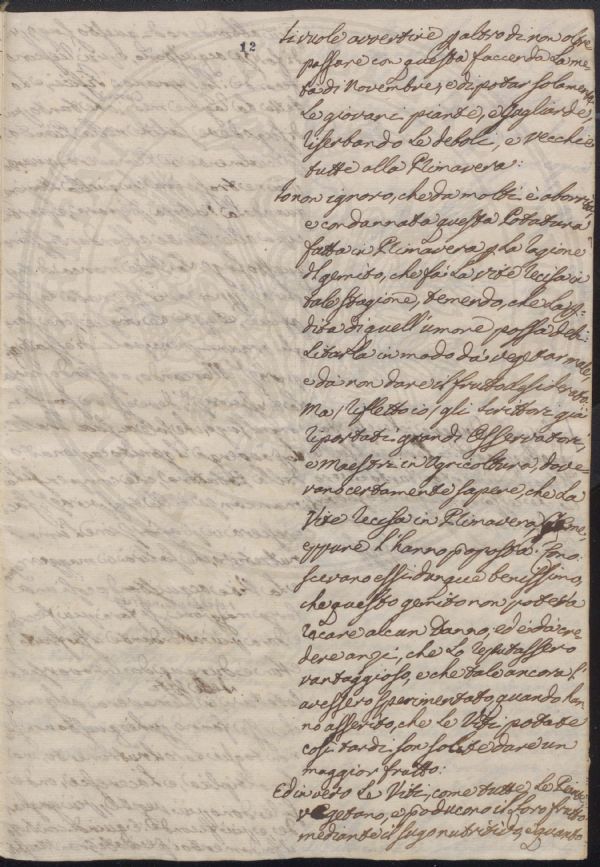 12
si vuole avvertire p altro di non oltre
passare con questa faccenda la me-
tà di Novembre, e di potar solamente
le giovani piante, e gagliarde
riserbando le deboli, e vecchie
tutte alla Primavera:
Io non ignoro, che da molti è aborrita,
e condannata questa Potatura
fatta in Primavera p la ragione
del gemito, che fa la vite recisa in
tale stagione, temendo, che la p-
dita di quell'umore possa debi-
litarla in modo da vegetar male,
e da non dare il frutto desiderato
Ma, rifletto io, gli scrittori già
riportati grandi Osservatori,
e Maestri in Agricoltura dove-
vano certamente sapere, che la
Vite recisa in Primavera geme,
eppure l'hanno proposta. Cono-
scevano essi dunque benissimo,
che questo gemito non poteva
recare alcun Danno, ed è da cre-
dere anzi, che lo reputassero
vantaggioso, e che tale ancora l'
avessero sperimentato, quando han-
no asserito, che le Viti potate
così tardi son solite dare un
maggior frutto:
Ed in vero le Viti, come tutte le Piante
vegetano, e producono il loro frutto
mediante il sugo nutritivo, e quanto